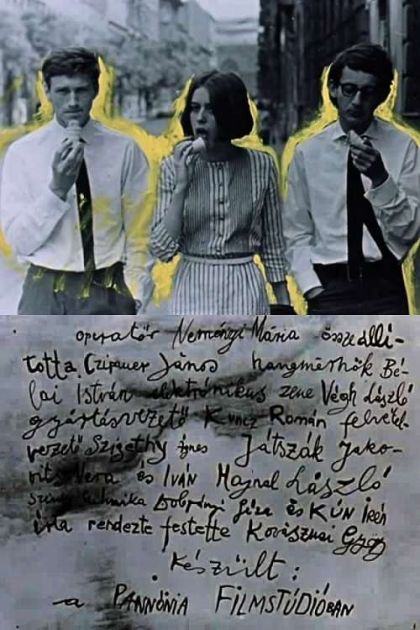 operatőr Neményi Mária összeállí-
totta Czipauer János hangmérnök Bé-
lai István elektrónikus zene Végh László
gyártásvezető Kunz Román felvétel-
vezető Szigethy Ágnes Játszák Jako-
vits Vera és Iván Hajnal László
színes technika Dobrányi Géza és Kún Irén
írta rendezte festette Kovásznai György
Készült:
a PANNÓNIA FILMSTÚDIÓBAN